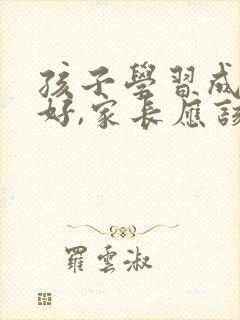 孩子學習成
好,家長應該
羅雲淑